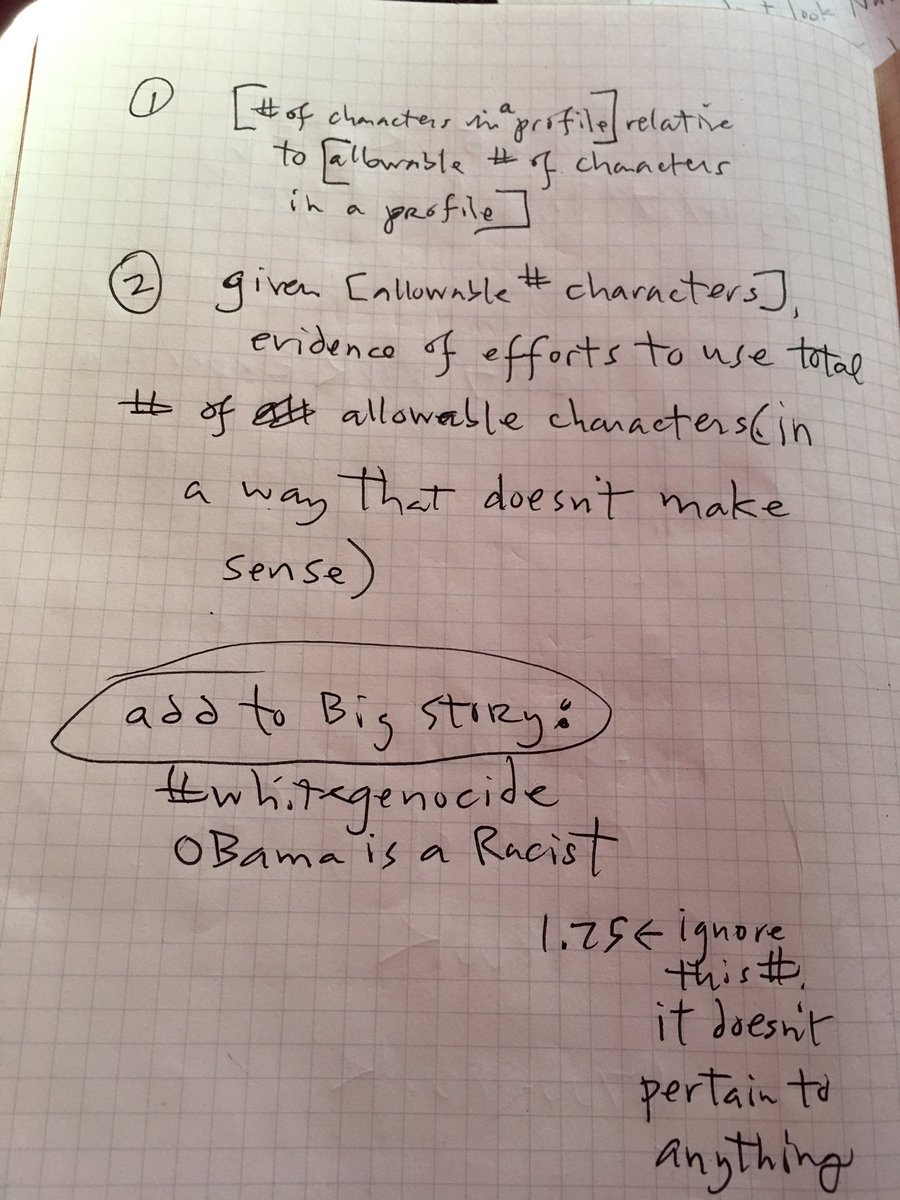 ① [# of characters in a profile] relative
to [allowable # of characters
in a profile]
② given [allowable # characters],
evidence of efforts to use total
# of allowable characters (in
a way that doesn't make
sense)
add to Big story:
#whitegenocide
OBama is a Racist
1.25 ← ignore
this #.
it doesn't
pertain to
anything